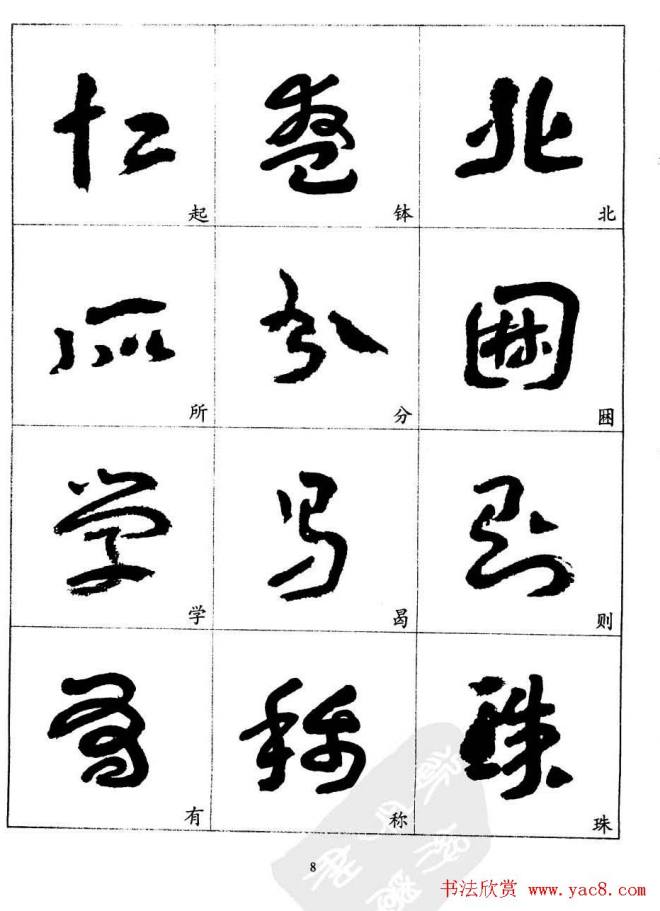 起 钵 北
所 分
学 曷 则
有 称 珠
8
书法欣赏 www.yac8.com